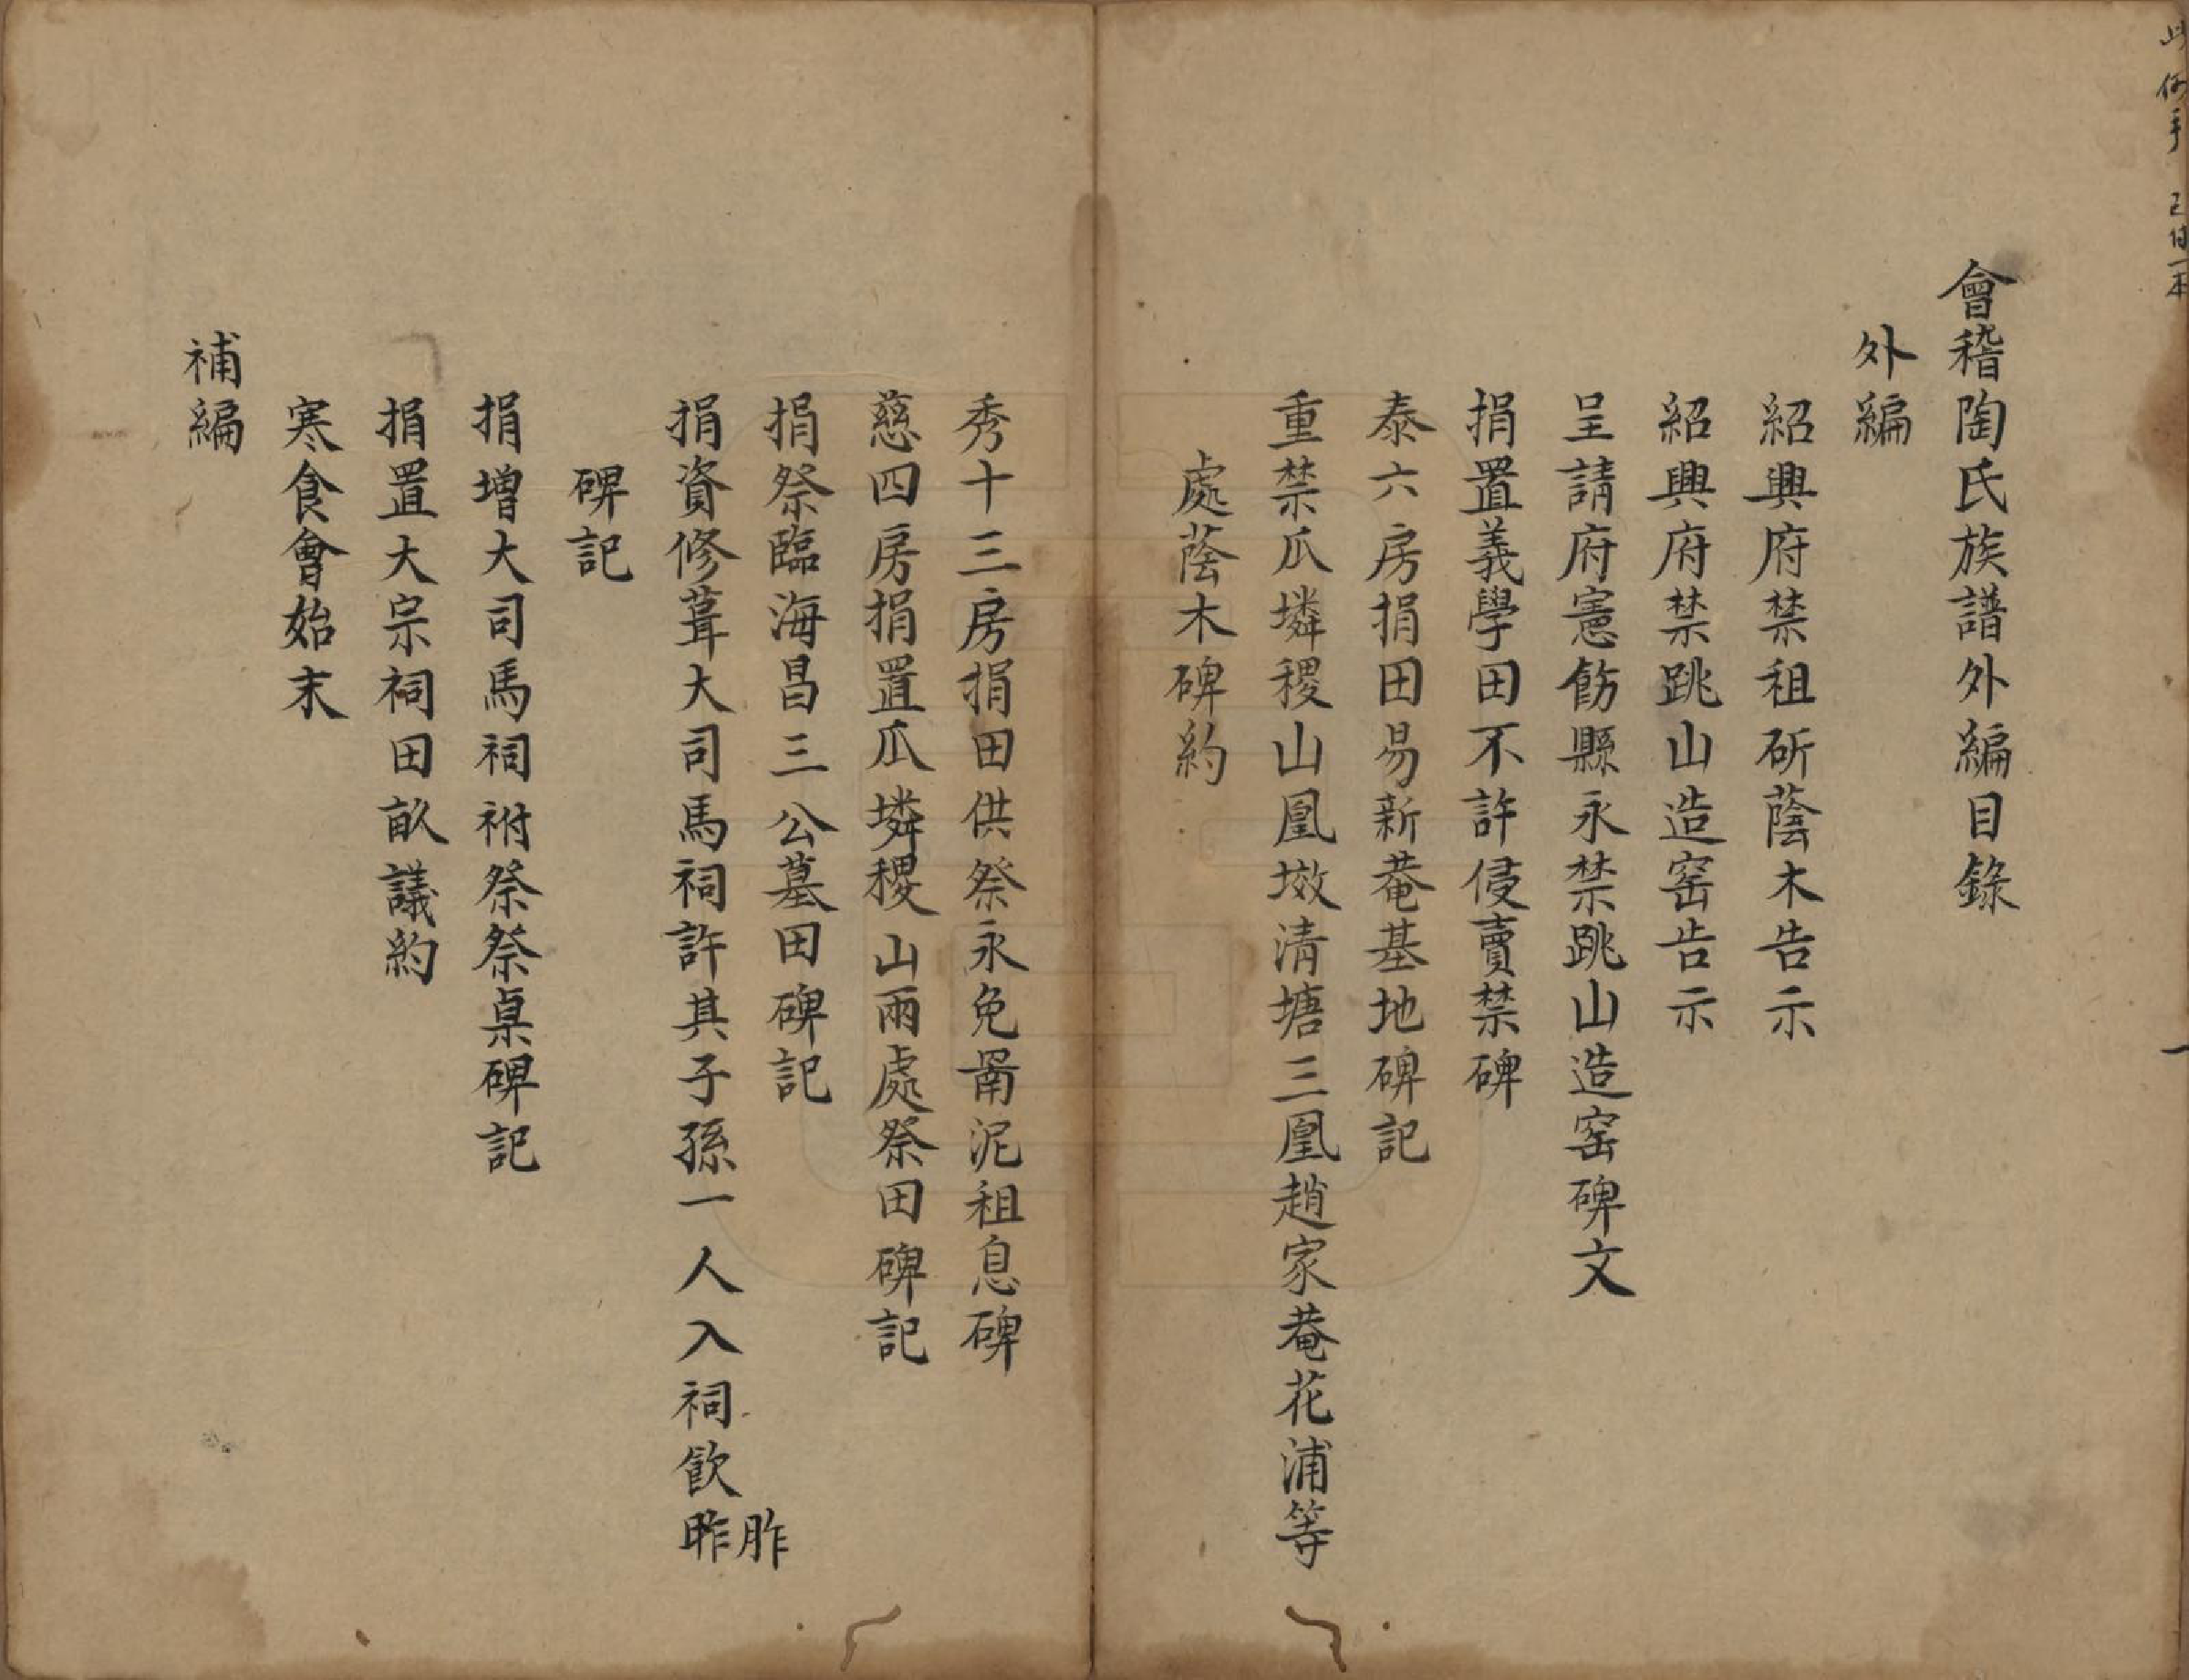 會稽陶氏族譜外編目錄
外編
紹興府禁租斫蔭木告示
紹興府禁跳山造窑告示
呈請府憲飭縣永禁跳山造窑碑文
捐置義學田不許侵賣禁碑
泰六房捐田易新菴基地碑記
重禁瓜塼稷山凰墩清塘三凰趙家菴花浦等
處蔭木碑約
秀十三房捐田供祭永免罱泥租息碑
慈四房捐置瓜塼稷山兩處祭田碑記
捐祭臨海昌三公墓田碑記
捐資修葺大司馬祠許其子孫一人入祠飲昨
胙
碑記
捐增大司馬祠祔祭祭桌碑記
捐置大宗祠田畝議約
寒食會始末
補編